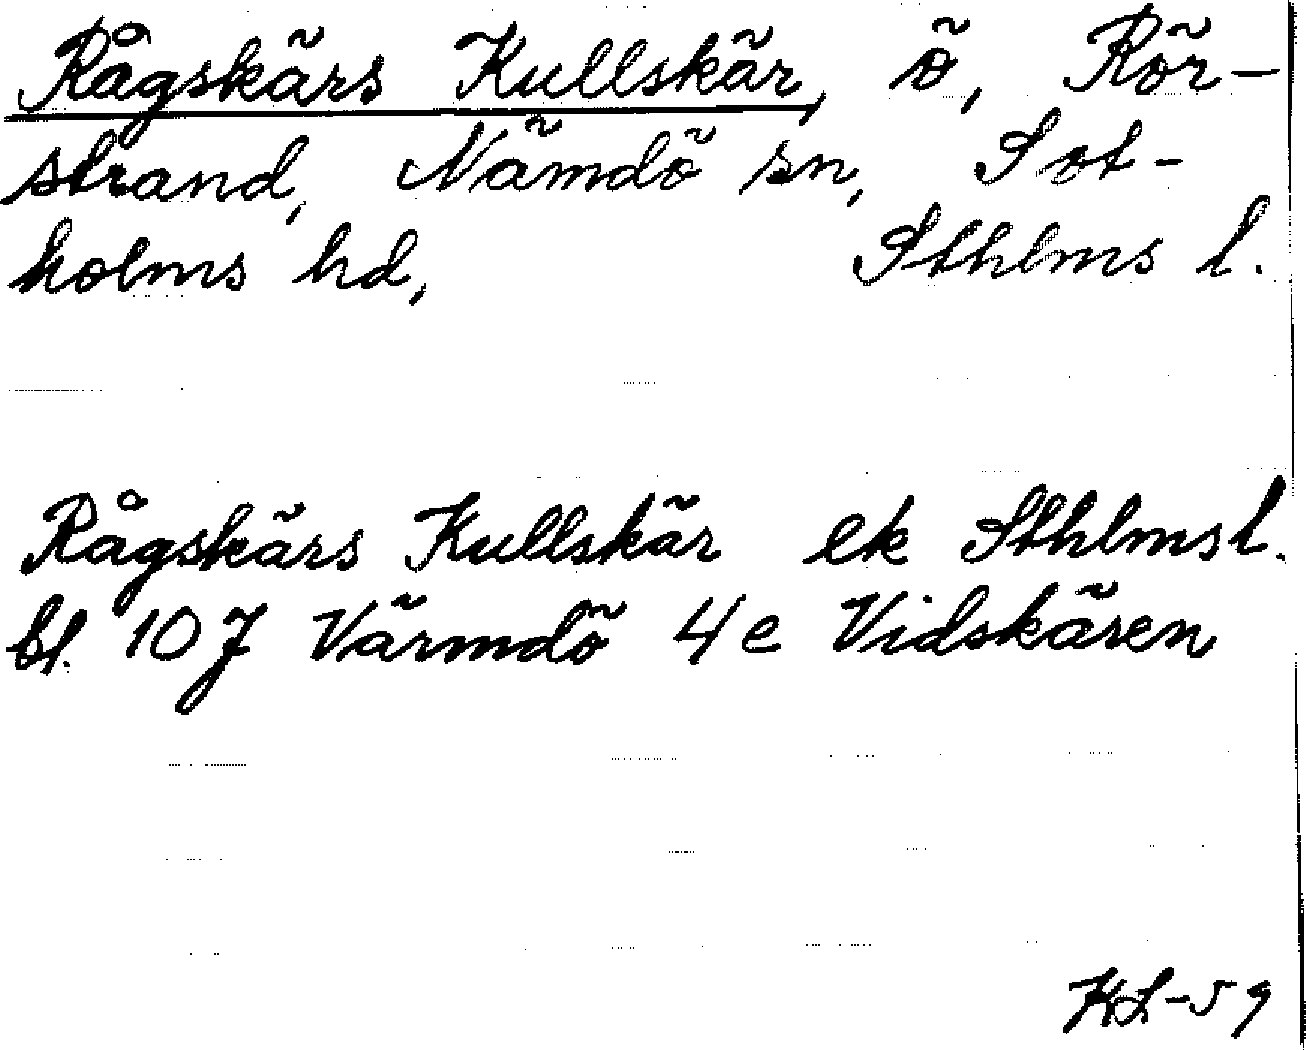 Rågskärs Kullskär, ö, Rör-
strand, Nämdö sn, Sot-
holms hd, Sthlms l.
Rågskärs Kullskär ek Sthlms l.
bl. 10 J Värmdö 4 e Vidskären
KL-59